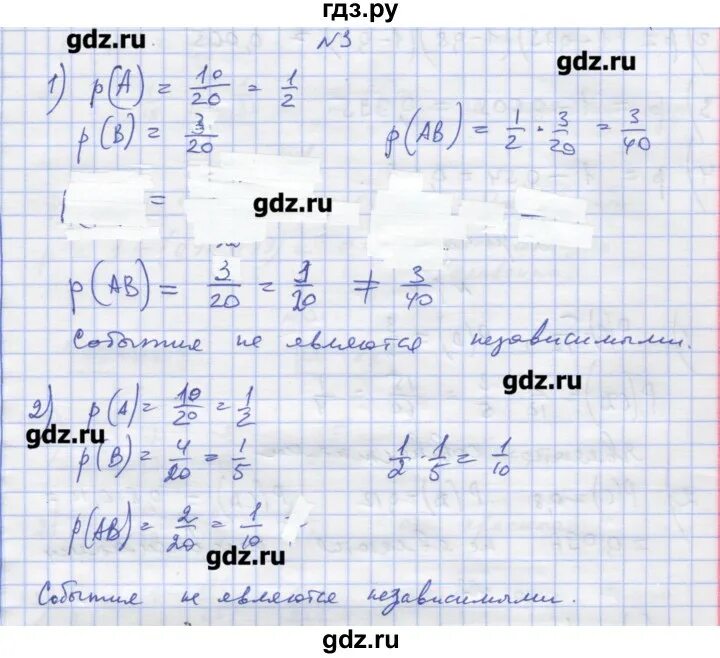 гдз.ру
gdz.ru
№3
gdz.ru
1) p(A) = 10/20 = 1/2
p(B) = 3/20
p(AB) = 1/2 · 3/20 = 3/40
=
gdz.ru
p(AB) = 3/20 = 3/20 ≠ 3/40
События не являются независимыми.
gdz.ru
2) p(A) = 10/20 = 1/2
gdz.ru
p(B) = 4/20 = 1/5
1/2 · 1/5 = 1/10
p(AB) = 2/20 = 1/10
gdz.ru
События не являются независимыми.
gdz.ru